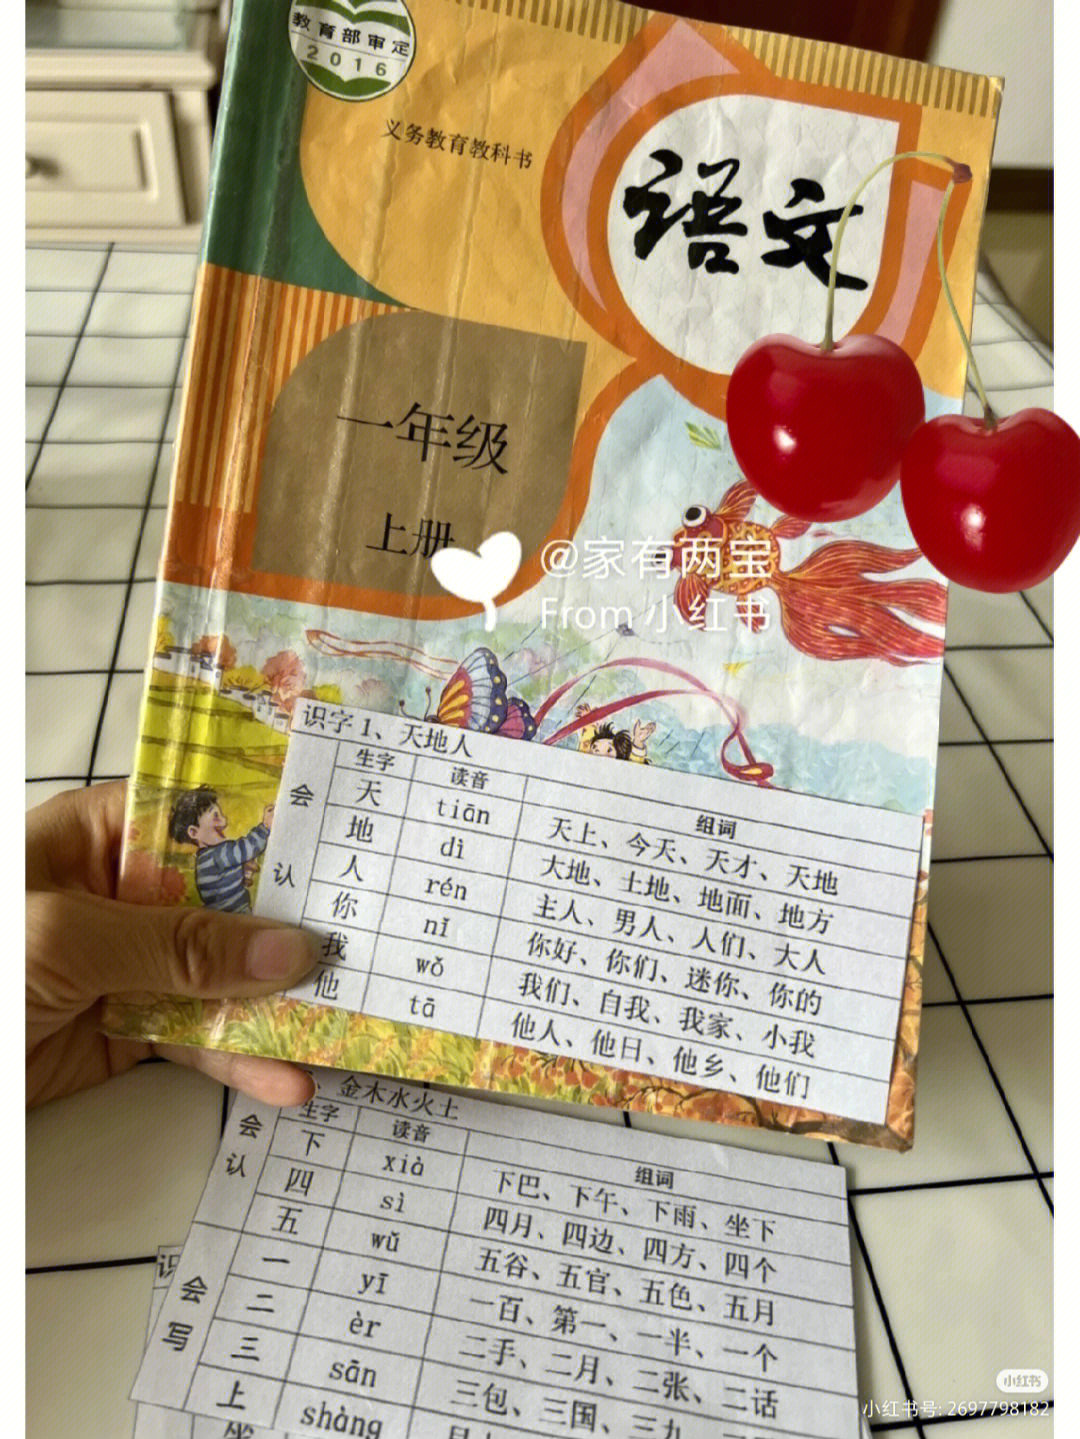 教育部审定
2016
义务教育教科书
语文
一年级
上册
@家有两宝
From 小红书
识字 1、天地人
会认
生字 读音 组词
天 tiān 天上、今天、天才、天地
地 dì 大地、土地、地面、地方
人 rén 主人、男人、人们、大人
你 nǐ 你好、你们、迷你、你的
我 wǒ 我们、自我、我家、小我
他 tā 他人、他日、他乡、他们
、金木水火土
会认
生字 读音 组词
下 xià 下巴、下午、下雨、坐下
四 sì 四月、四边、四方、四个
五 wǔ 五谷、五官、五色、五月
会写
一 yī 一百、第一、一半、一个
二 èr 二手、二月、二张、二话
三 sān 三包、三国、三九、
上 shàng
识
小红书
小红书号: 2697798182